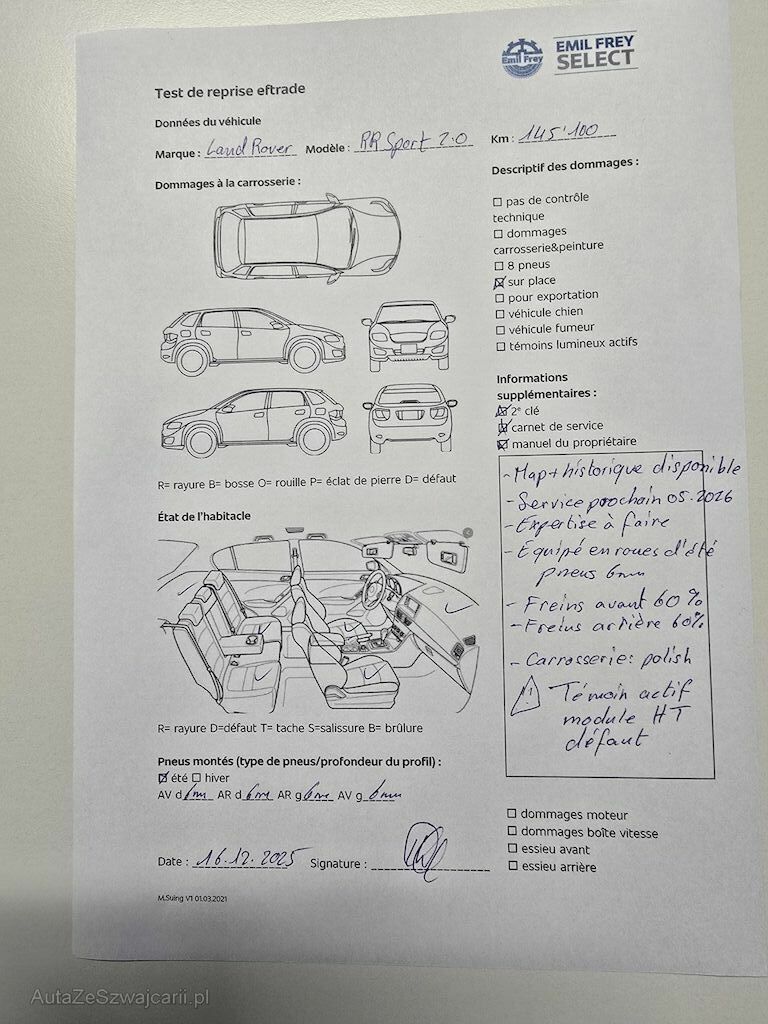 Emil Frey
EMIL FREY
SELECT
Test de reprise eftrade
Données du véhicule
Marque : Land Rover Modèle : RR Sport 2.0 Km : 145'100
Dommages à la carrosserie :
Descriptif des dommages :
☐ pas de contrôle
technique
☐ dommages
carrosserie&peinture
☐ 8 pneus
☒ sur place
☐ pour exportation
☐ véhicule chien
☐ véhicule fumeur
☐ témoins lumineux actifs
Informations
supplémentaires :
☒ 2e clé
☒ carnet de service
☒ manuel du propriétaire
R= rayure B= bosse O= rouille P= éclat de pierre D= défaut
État de l'habitacle
- Map+historique disponible
- Service prochain 05.2026
- Expertise à faire
- Equipé en roues d'été
pneus 6mm
- Freins avant 60%
- Freins arrière 60%
- Carrosserie: polish
⚠ Témoin actif
module HT
défaut
R= rayure D=défaut T= tache S=salissure B= brûlure
Pneus montés (type de pneus/profondeur du profil) :
☒ été ☐ hiver
AV d 6mm AR d 6mm AR g 6mm AV g 6mm
☐ dommages moteur
☐ dommages boîte vitesse
☐ essieu avant
☐ essieu arrière
Date : 16.12.2025 Signature :
M.Suing V1 01.03.2021
AutaZeSzwajcarii.pl